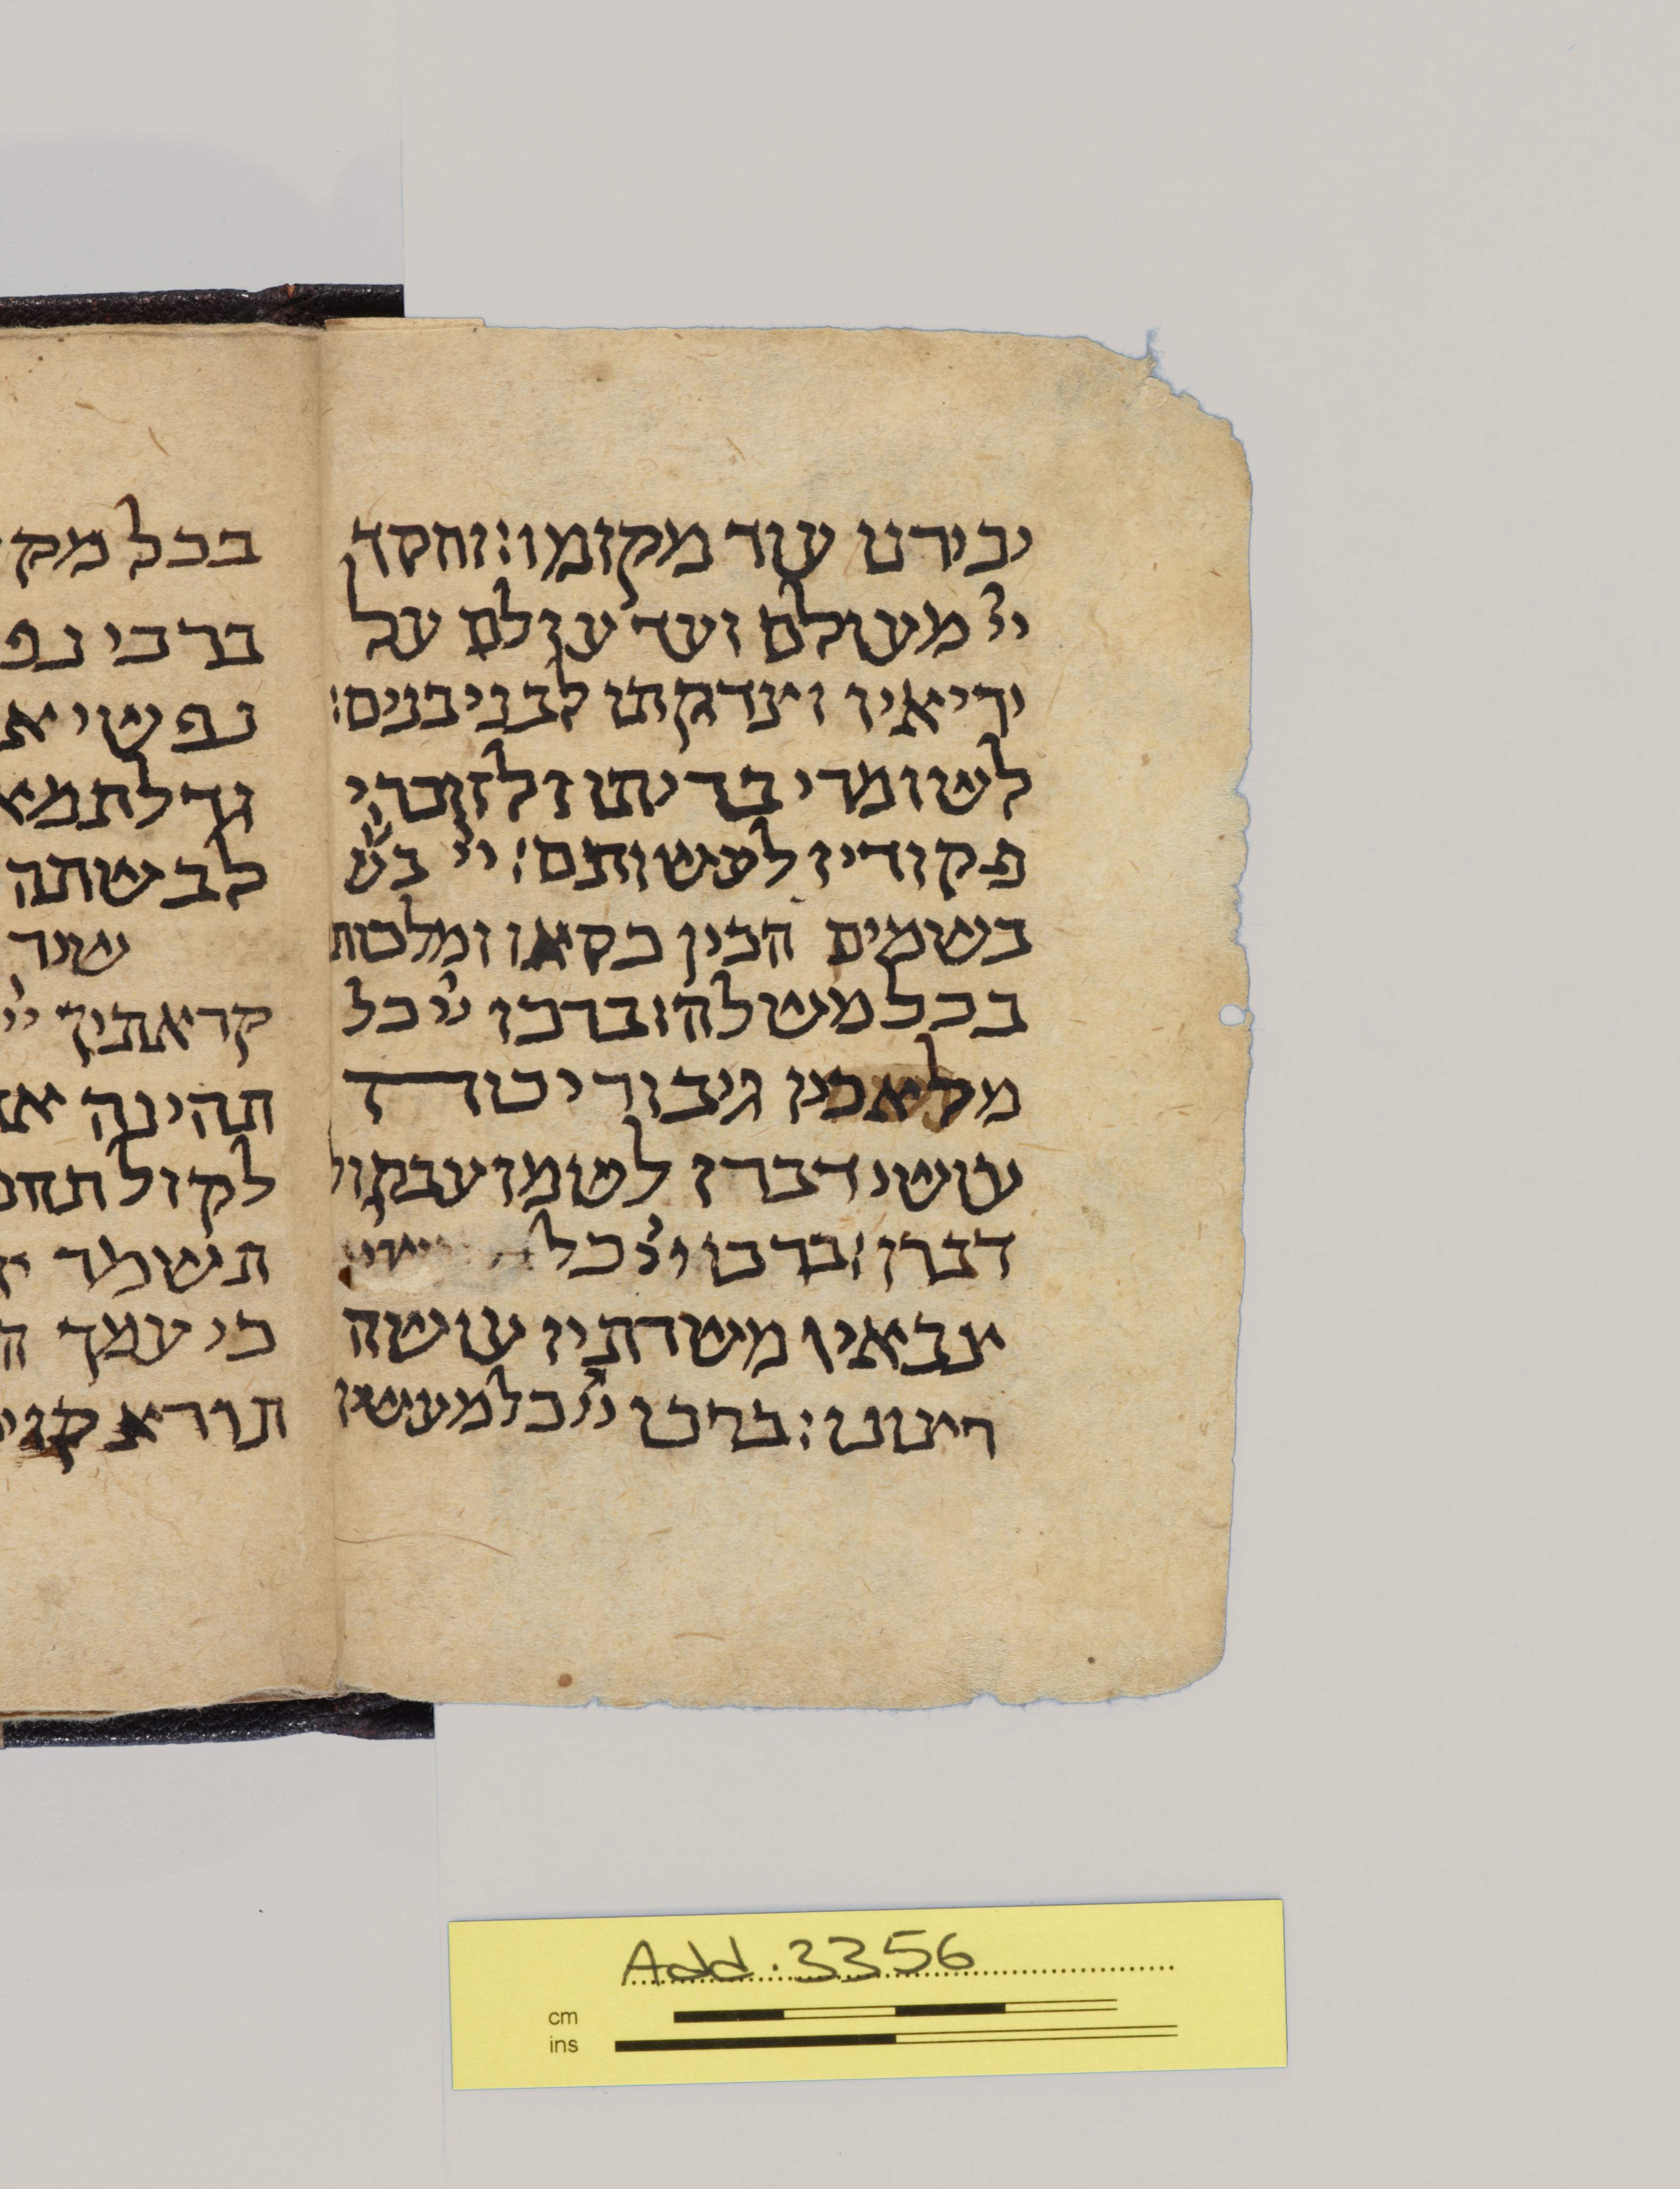 יכירנו עוד מקומו: וחסד
ייי מעולם ועד עולם על
יריאיו וצדקתו לבני בנים:
לשומרי בריתו ולזוכרי
פקודיו לעשותם: ייי בש
בשמים הכין כסאו ומלכות
בכל משלה: ברכו ייי כל
מלאכיו גיבורי כוח
עושי דברו לשמוע בקול
דברו: ברכו ייי כל
צבאיו משרתיו עושה
רצונו: ברכו ייי כל מעשיו
בכל מק
ברכי נפ
נפשי א
גדלת מא
לבשתה
שיר
קראתיך ייי
תהינה אז
לקול תחנ
תשמר י
כי עמך ה
תורא קוי
Add. 3356
cm
ins